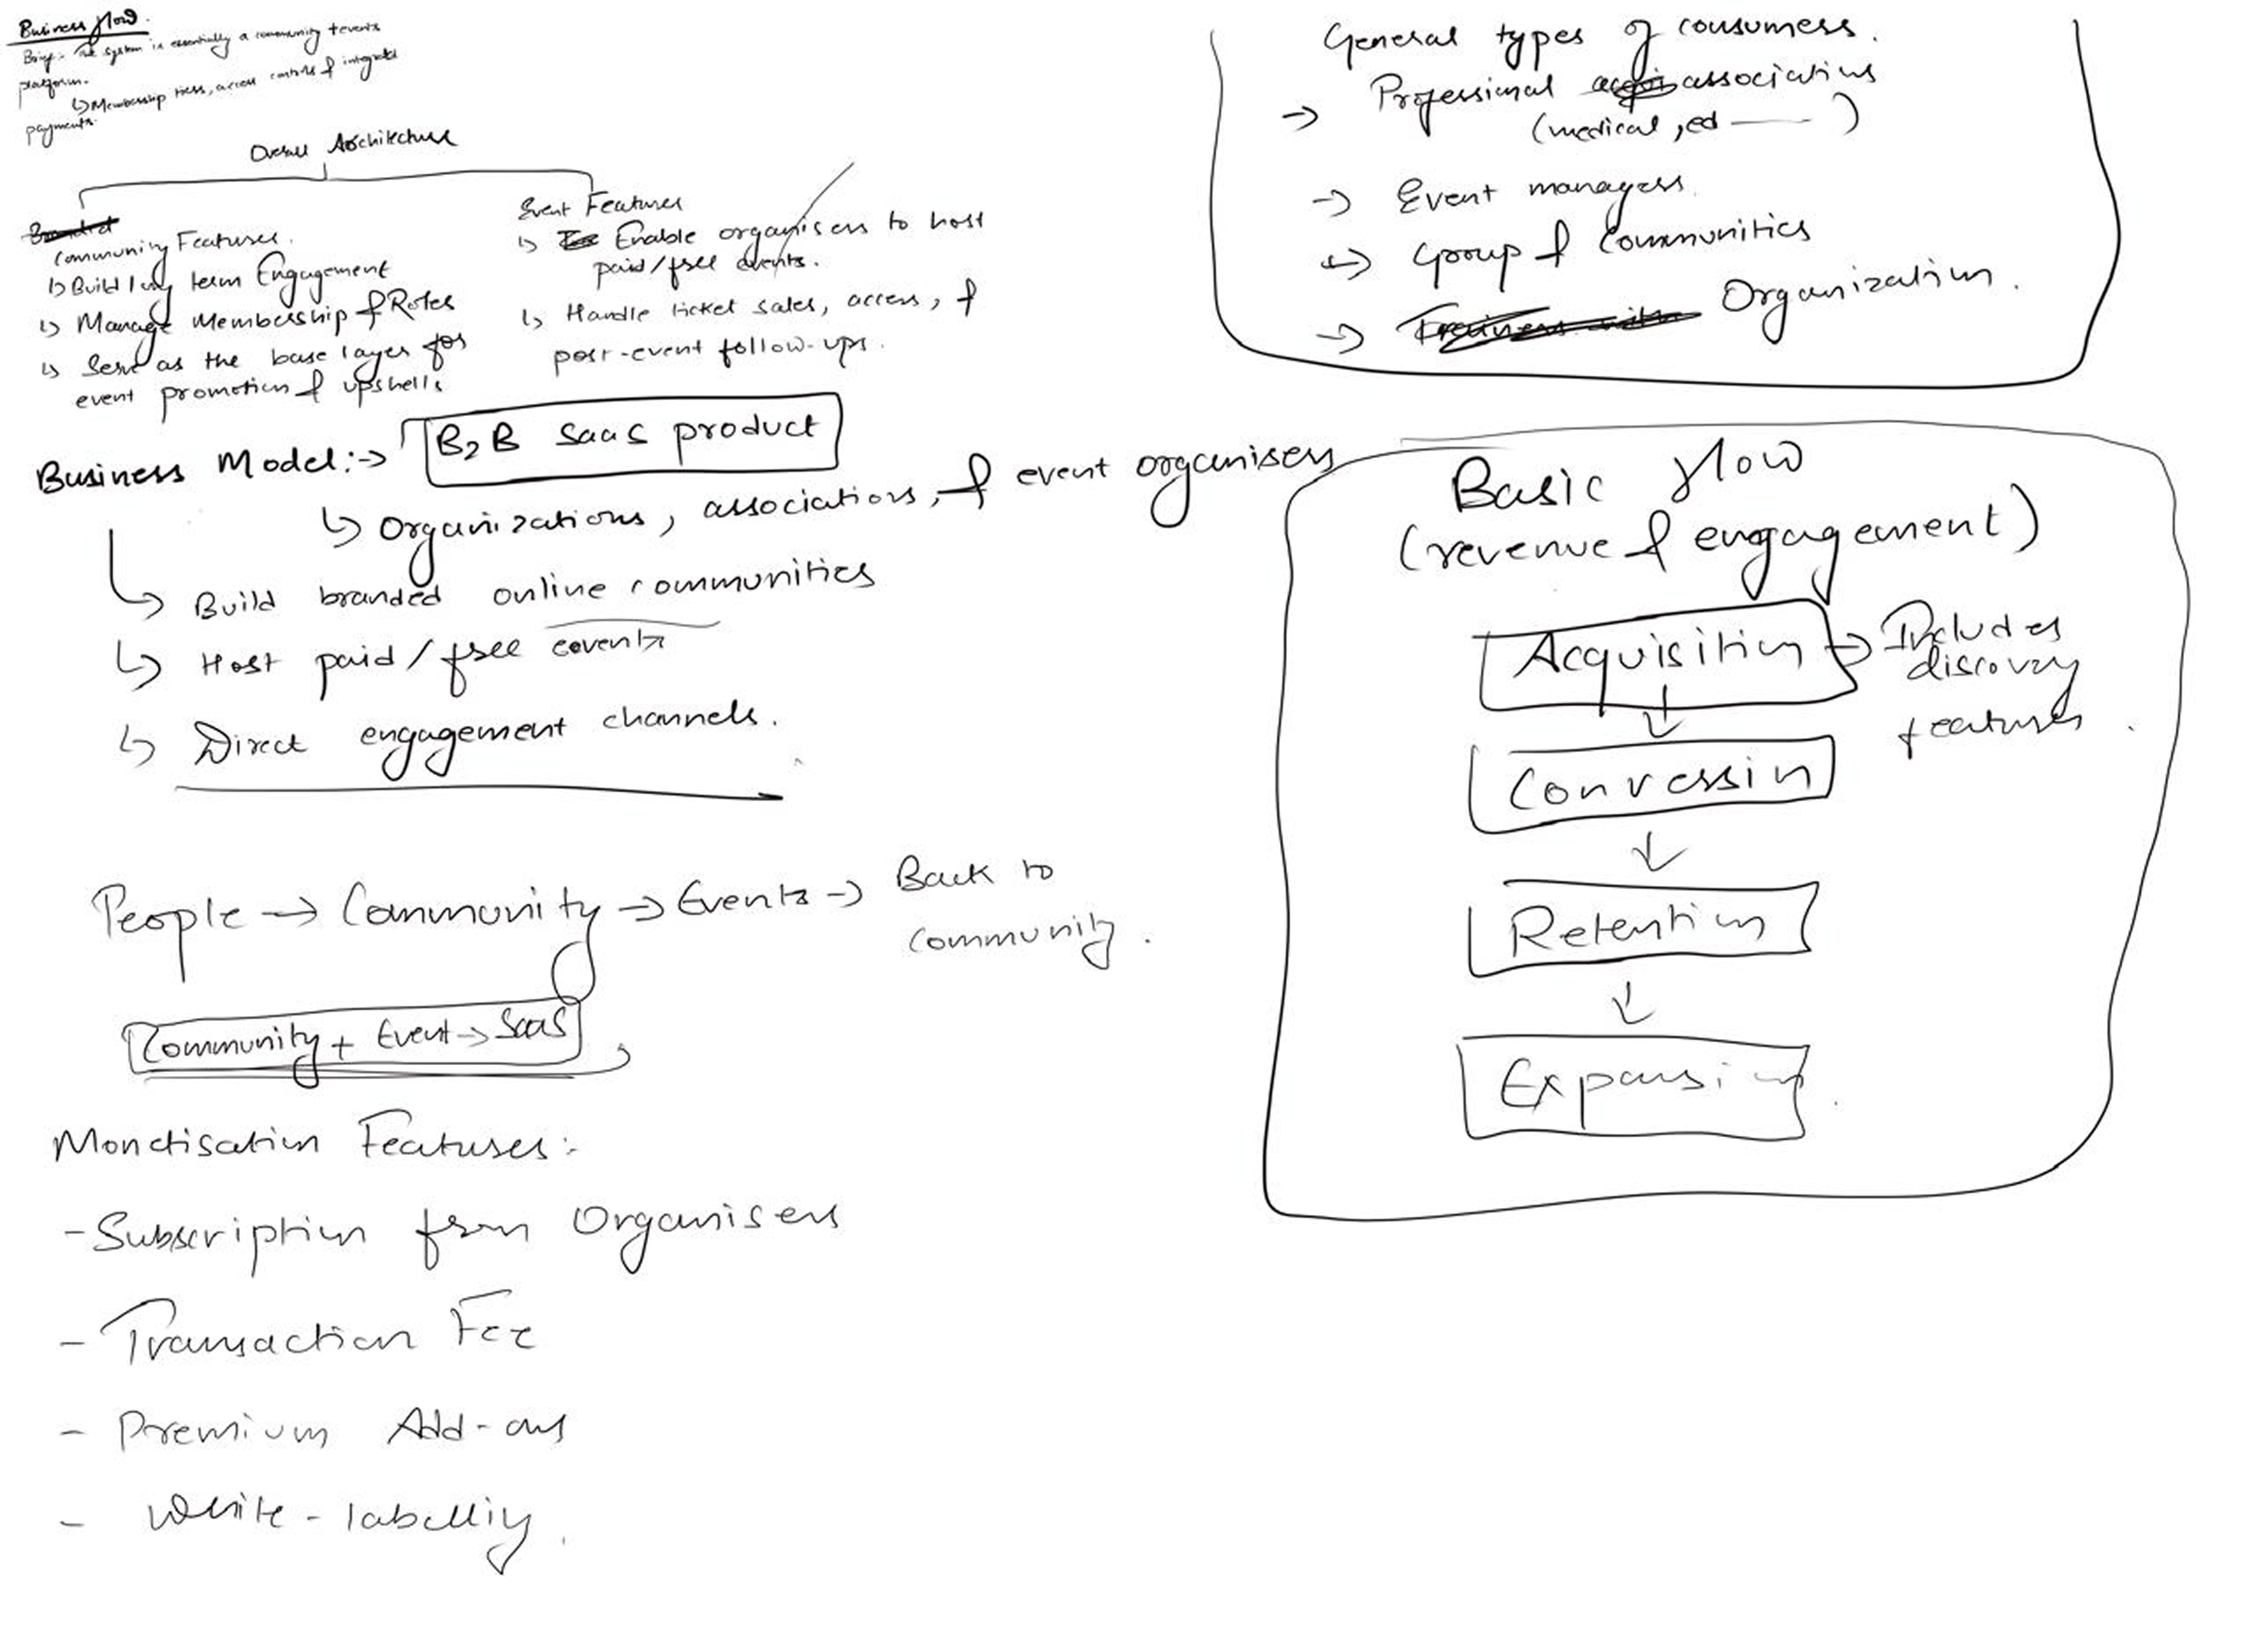 Business flow.
Brief:- The system is essentially a community + events
platform.
↳ Membership tiers, access controls & integrated
payments.
Overall Architecture
Community Features.
↳ Build long term Engagement
↳ Manage Membership & Roles
↳ Serve as the base layer for
event promotion & upshells
Event Features
↳ Enable organisers to host
paid/free events.
↳ Handle ticket sales, access, &
post-event follow-ups.
Business Model:-> B2B SaaS product
↳ Organizations, associations, & event organisers
↳ Build branded online communities
↳ Host paid/free events
↳ Direct engagement channels.
People → Community → Events → Back to
community.
Community + Event → SaaS
Monetisation Features:-
- Subscription from Organisers
- Transaction Fee
- Premium Add-ons
- White-labelling.
General types of consumers.
→ Professional associations
(medical, ed —— )
→ Event managers.
→ Group & Communities
→ Organization.
Basic flow
(revenue & engagement)
Acquisition → Includes
discovery
features.
↓
Conversion
↓
Retention
↓
Expansion